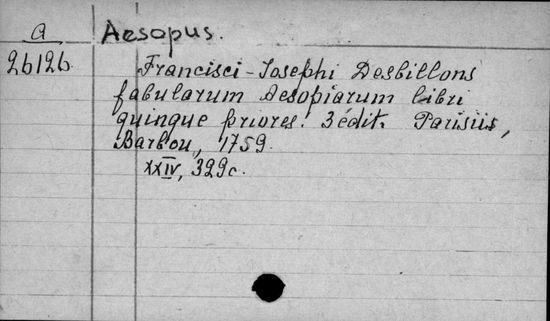 a
Aesopus.
26126
Francisci-Josephi Desbillons
fabularum Aesopiarum libri
quinque priores. 3 édit. Parisiis,
Barbou, 1759.
XXIV, 329c.